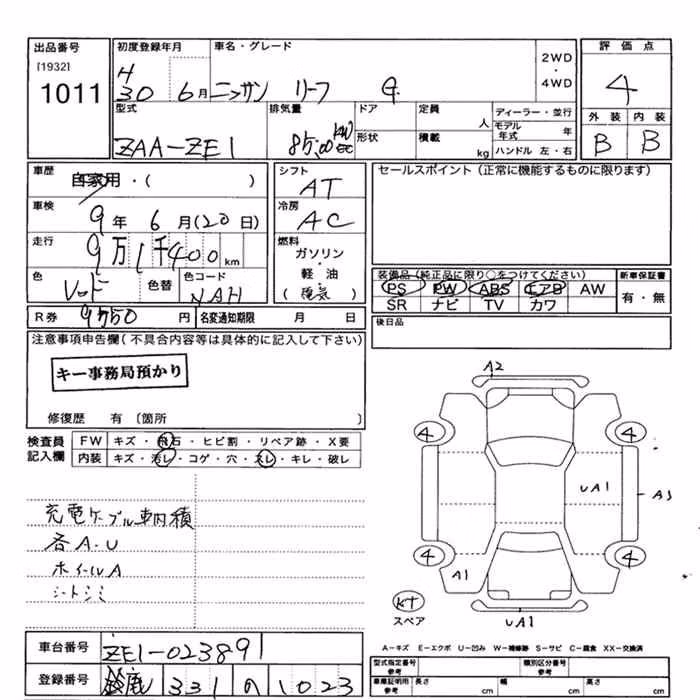 出品番号
[1932]
1011
初度登録年月
H
30 6月
車名・グレード
ニッサン リーフ G
2WD
・
4WD
評価点
4
外装 内装
B B
型式
ZAA-ZE1
排気量
85.00 KW
cc
ドア
形状
定員
人
積載
kg
ディーラー・並行
モデル
年式 年
ハンドル 左・右
車歴
自家用・( )
車検
9年 6月(20日)
走行
9万1千400km
色
レッド
色替
色コード
NAH
シフト
AT
冷房
AC
燃料
ガソリン
・
軽油
(電気)
セールスポイント(正常に機能するものに限ります)
装備品(純正品に限り○をつけてください)
PS PW ABS エアB AW
SR ナビ TV カワ
新車保証書
有・無
R券 9550円
名変通知期限 月 日
後日品
注意事項申告欄(不具合内容等は具体的に記入して下さい)
キー事務局預かり
修復歴 有〔箇所 〕
検査員
記入欄
FW キズ・飛石・ヒビ割・リペア跡・X要
内装 キズ・汚レ・コゲ・穴・スレ・キレ・破レ
充電ケーブル車内積
各A.U
ホイールA
シートシミ
A2
4 4
UA1
A3
4 4
A1
KT
スペア
UA1
A-キズ E-エクボ U-凹み W-補修跡 S-サビ C-腐食 XX-交換済
車台番号
ZE1-023891
登録番号
鈴鹿 331 の 1023
型式指定番号
参考
類別区分番号
参考
車庫証明用
参考
長さ cm
幅 cm
高さ cm